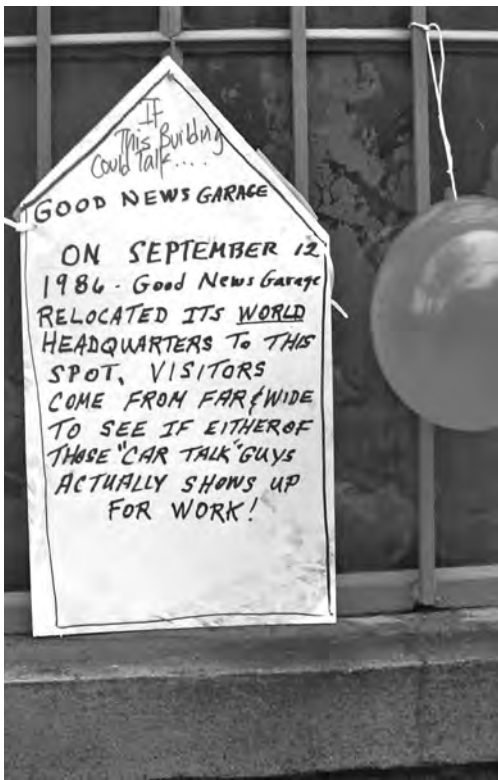 If
This Building
Could Talk....
GOOD NEWS GARAGE
ON SEPTEMBER 12
1986 - Good News Garage
RELOCATED ITS WORLD
HEADQUARTERS TO THIS
SPOT. VISITORS
COME FROM FAR & WIDE
TO SEE IF EITHER OF
THOSE "CAR TALK" GUYS
ACTUALLY SHOWS UP
FOR WORK!